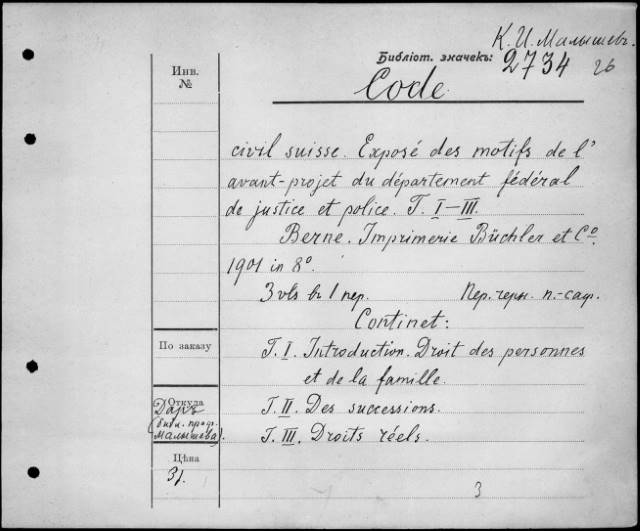 К. И. Малышевъ.
Инв.
№
Библіот. значекъ: 2734 26
Code
civil suisse. Exposé des motifs de l'
avant-projet du département fédéral
de justice et police. T. I–III.
Berne. Imprimerie Büchler et Cº.
1901 in 8º.
3 vls въ 1 пер. Пер. черн. п.-саф.
Continet:
По заказу
T. I. Introduction. Droit des personnes
et de la famille.
Откуда
Даръ
(библ. проф.
Малышева).
T. II. Des successions.
T. III. Droits réels.
Цѣна
3